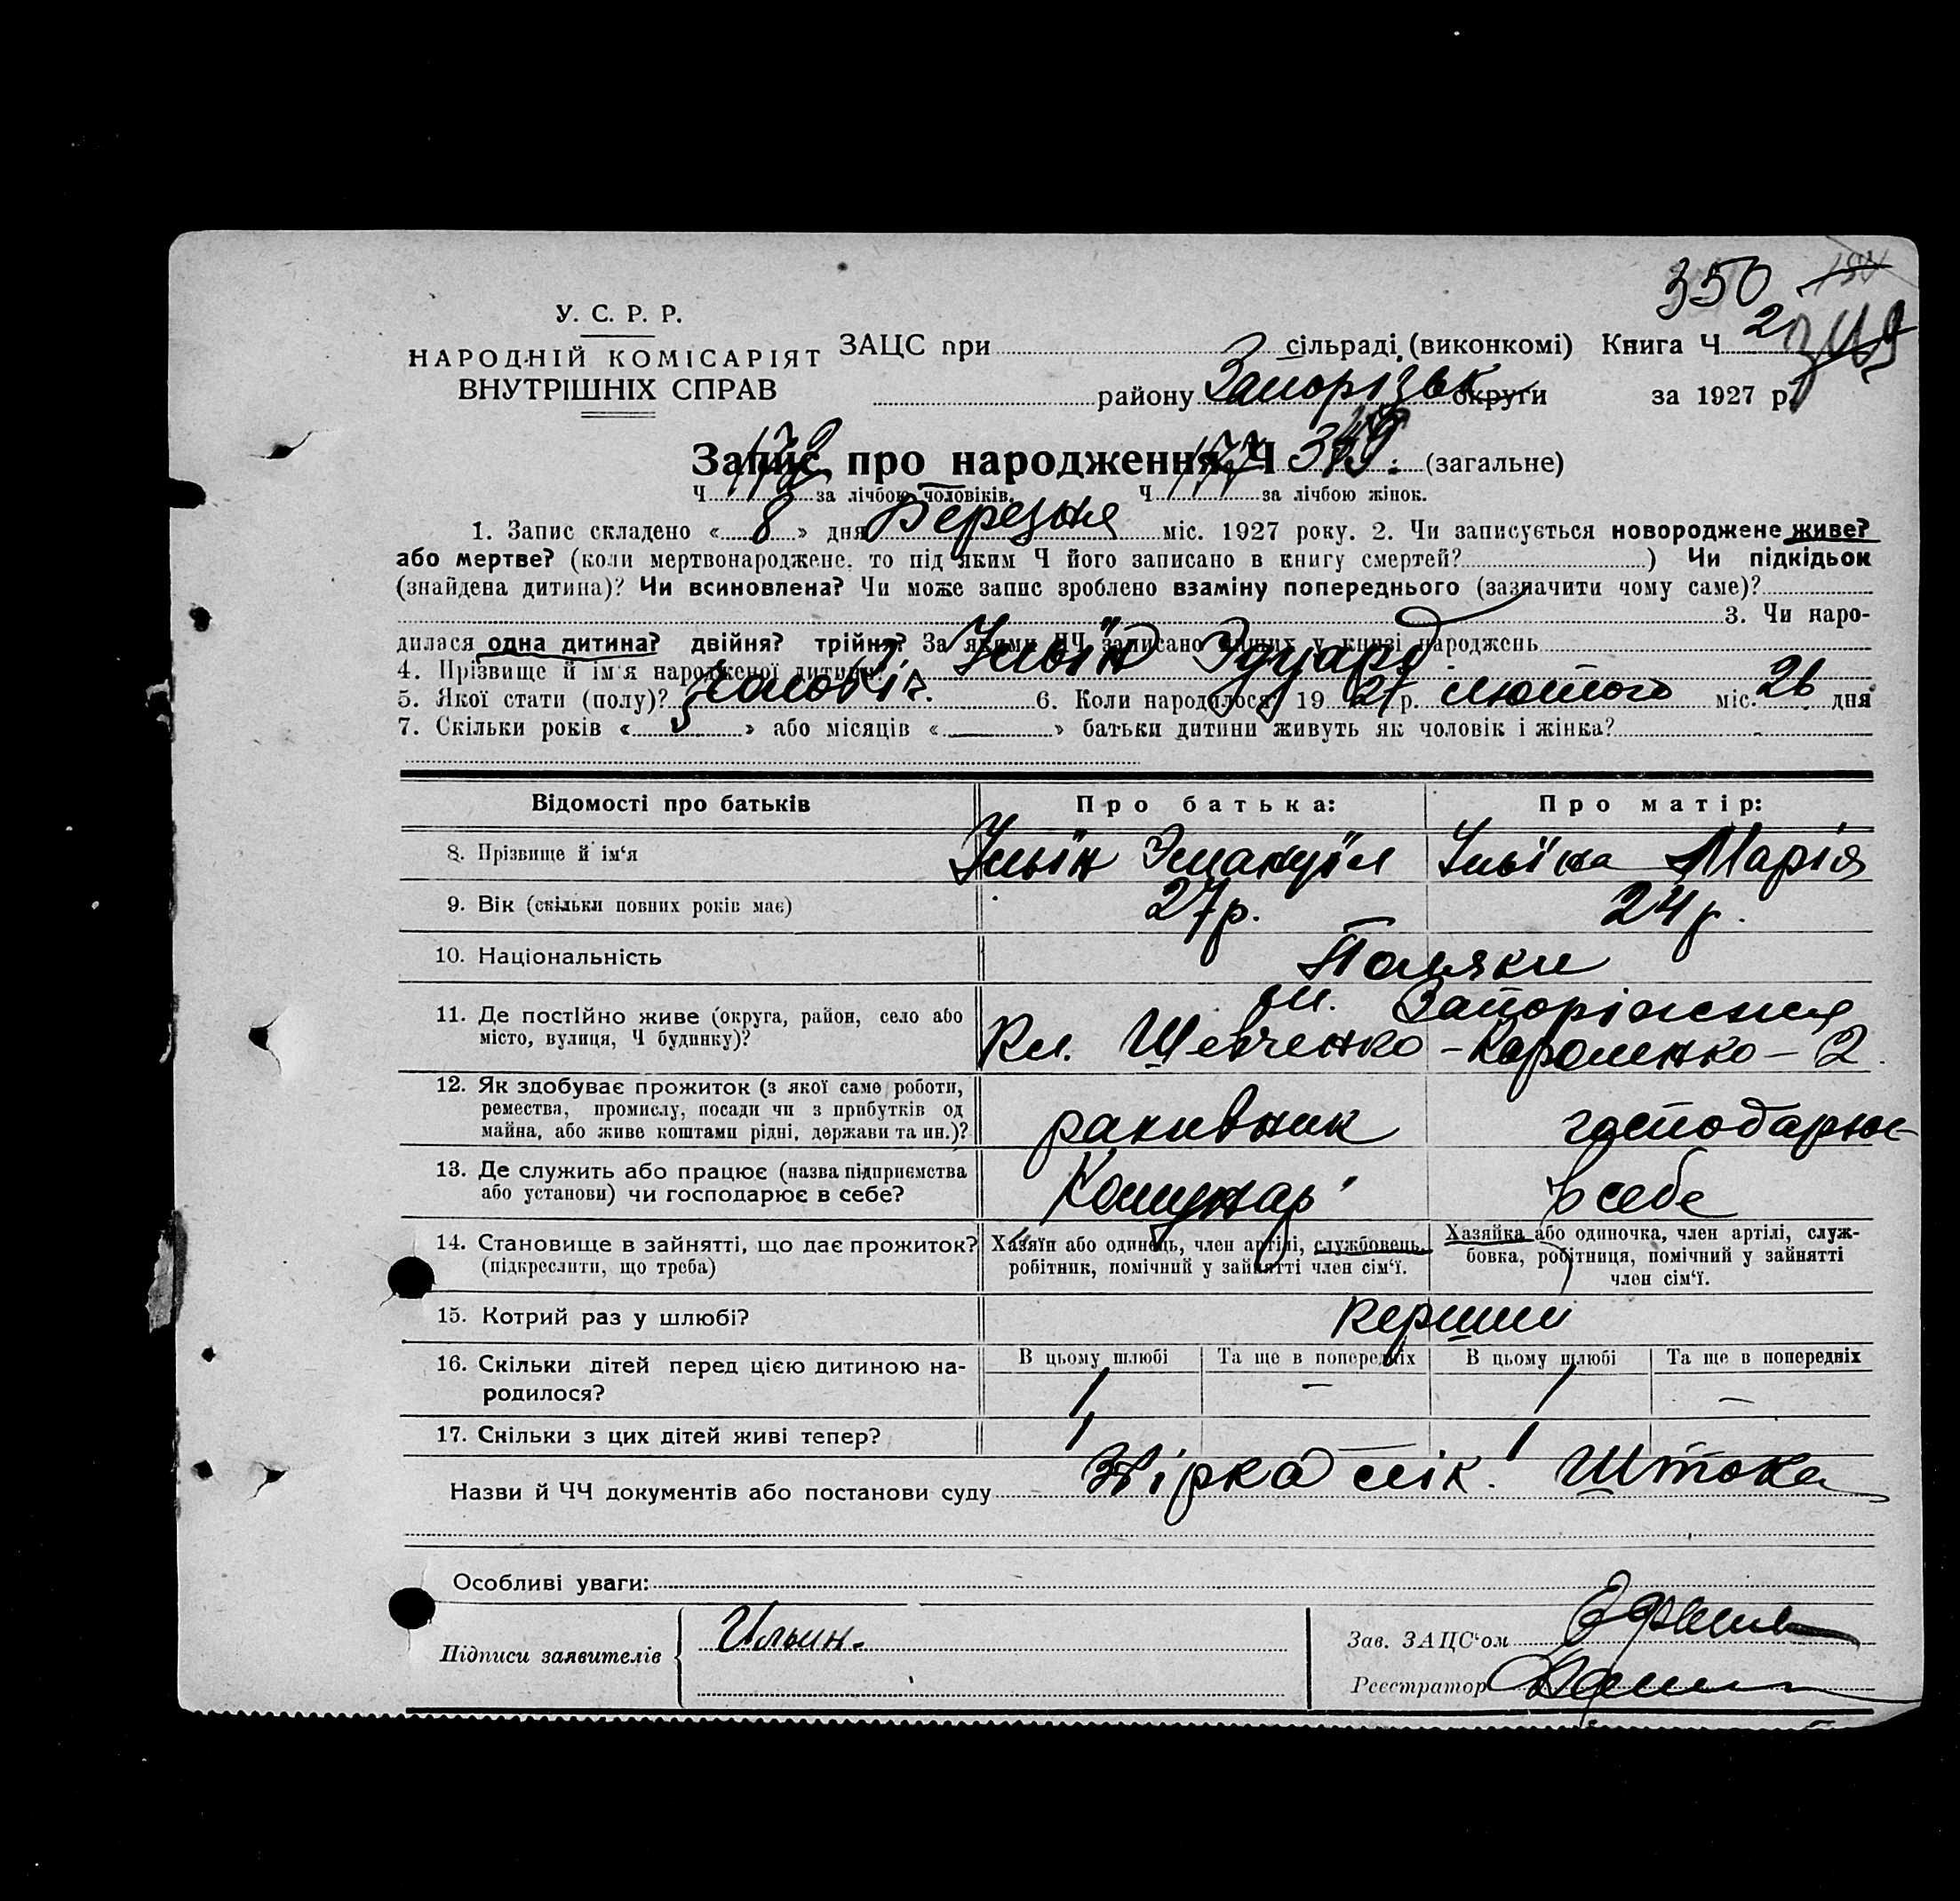 350
У. С. Р. Р.
НАРОДНІЙ КОМІСАРІЯТ
ВНУТРІШНІХ СПРАВ
ЗАЦС при сільраді (виконкомі) Книга Ч 2
району Запорізьк округи за 1927 р.
Запис про народження Ч 349. (загальне)
Ч за лічбою чоловіків. Ч 177 за лічбою жінок.
1. Запис складено « 8 » дня Березня міс. 1927 року. 2. Чи записується новороджене живе?
або мертве? (коли мертвонароджене, то під яким Ч його записано в книгу смертей? ) Чи підкідьок
(знайдена дитина)? Чи всиновлена? Чи може запис зроблено взаміну попереднього (зазначити чому саме)?
3. Чи наро-
дилася одна дитина? двійня? трійня? За якими ЧЧ записано інших у книзі народжень
4. Прізвище й ім'я народженої дитини? Ільїн Едуард
5. Якої стати (полу)? чоловіч. 6. Коли народилося? 19 27 р. лютого міс. 26 дня
7. Скільки років « 3 » або місяців « — » батьки дитини живуть як чоловік і жінка?
Відомості про батьків Про батька: Про матір:
8. Прізвище й ім'я Ільїн Эмануїл Ільїна Марія
9. Вік (скільки повних років має) 27р. 24р.
10. Національність Поляки
11. Де постійно живе (округа, район, село або
місто, вулиця, Ч будинку)?
м. Запоріжжя
Шевченко - Короленко - 2
12. Як здобуває прожиток (з якої саме роботи,
ремества, промислу, посади чи з прибутків од
майна, або живе коштами рідні, держави та ин.)?
господарює
13. Де служить або працює (назва підприємства
або установи) чи господарює в себе?
Комунар в себе
14. Становище в зайнятті, що дає прожиток?
(підкреслити, що треба)
Хазяїн або одинець, член артілі, службовець,
робітник, помічний у зайнятті член сім'ї.
Хазяйка або одиночка, член артілі, служ-
бовка, робітниця, помічний у зайнятті
член сім'ї.
15. Котрий раз у шлюбі? перший
16. Скільки дітей перед цією дитиною на-
родилося?
В цьому шлюбі Та ще в попередніх В цьому шлюбі Та ще в попередніх
1 — 1 —
17. Скільки з цих дітей живі тепер? 1 — 1
Назви й ЧЧ документів або постанови суду лік. Штока
Особливі уваги:
Підписи заявителів Ильин.
Зав. ЗАЦС'ом
Реєстратор